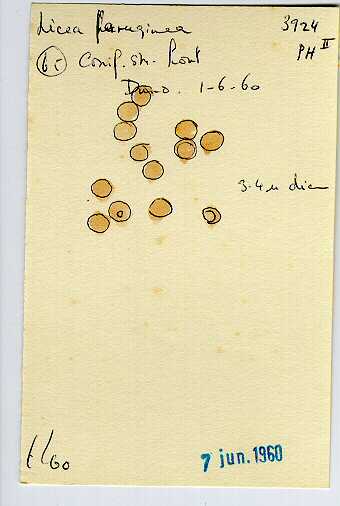 Licea ferruginea 3924
PH II
Conif. st. Hout
1-6-60
3-4 µ diam
60
7 jun. 1960